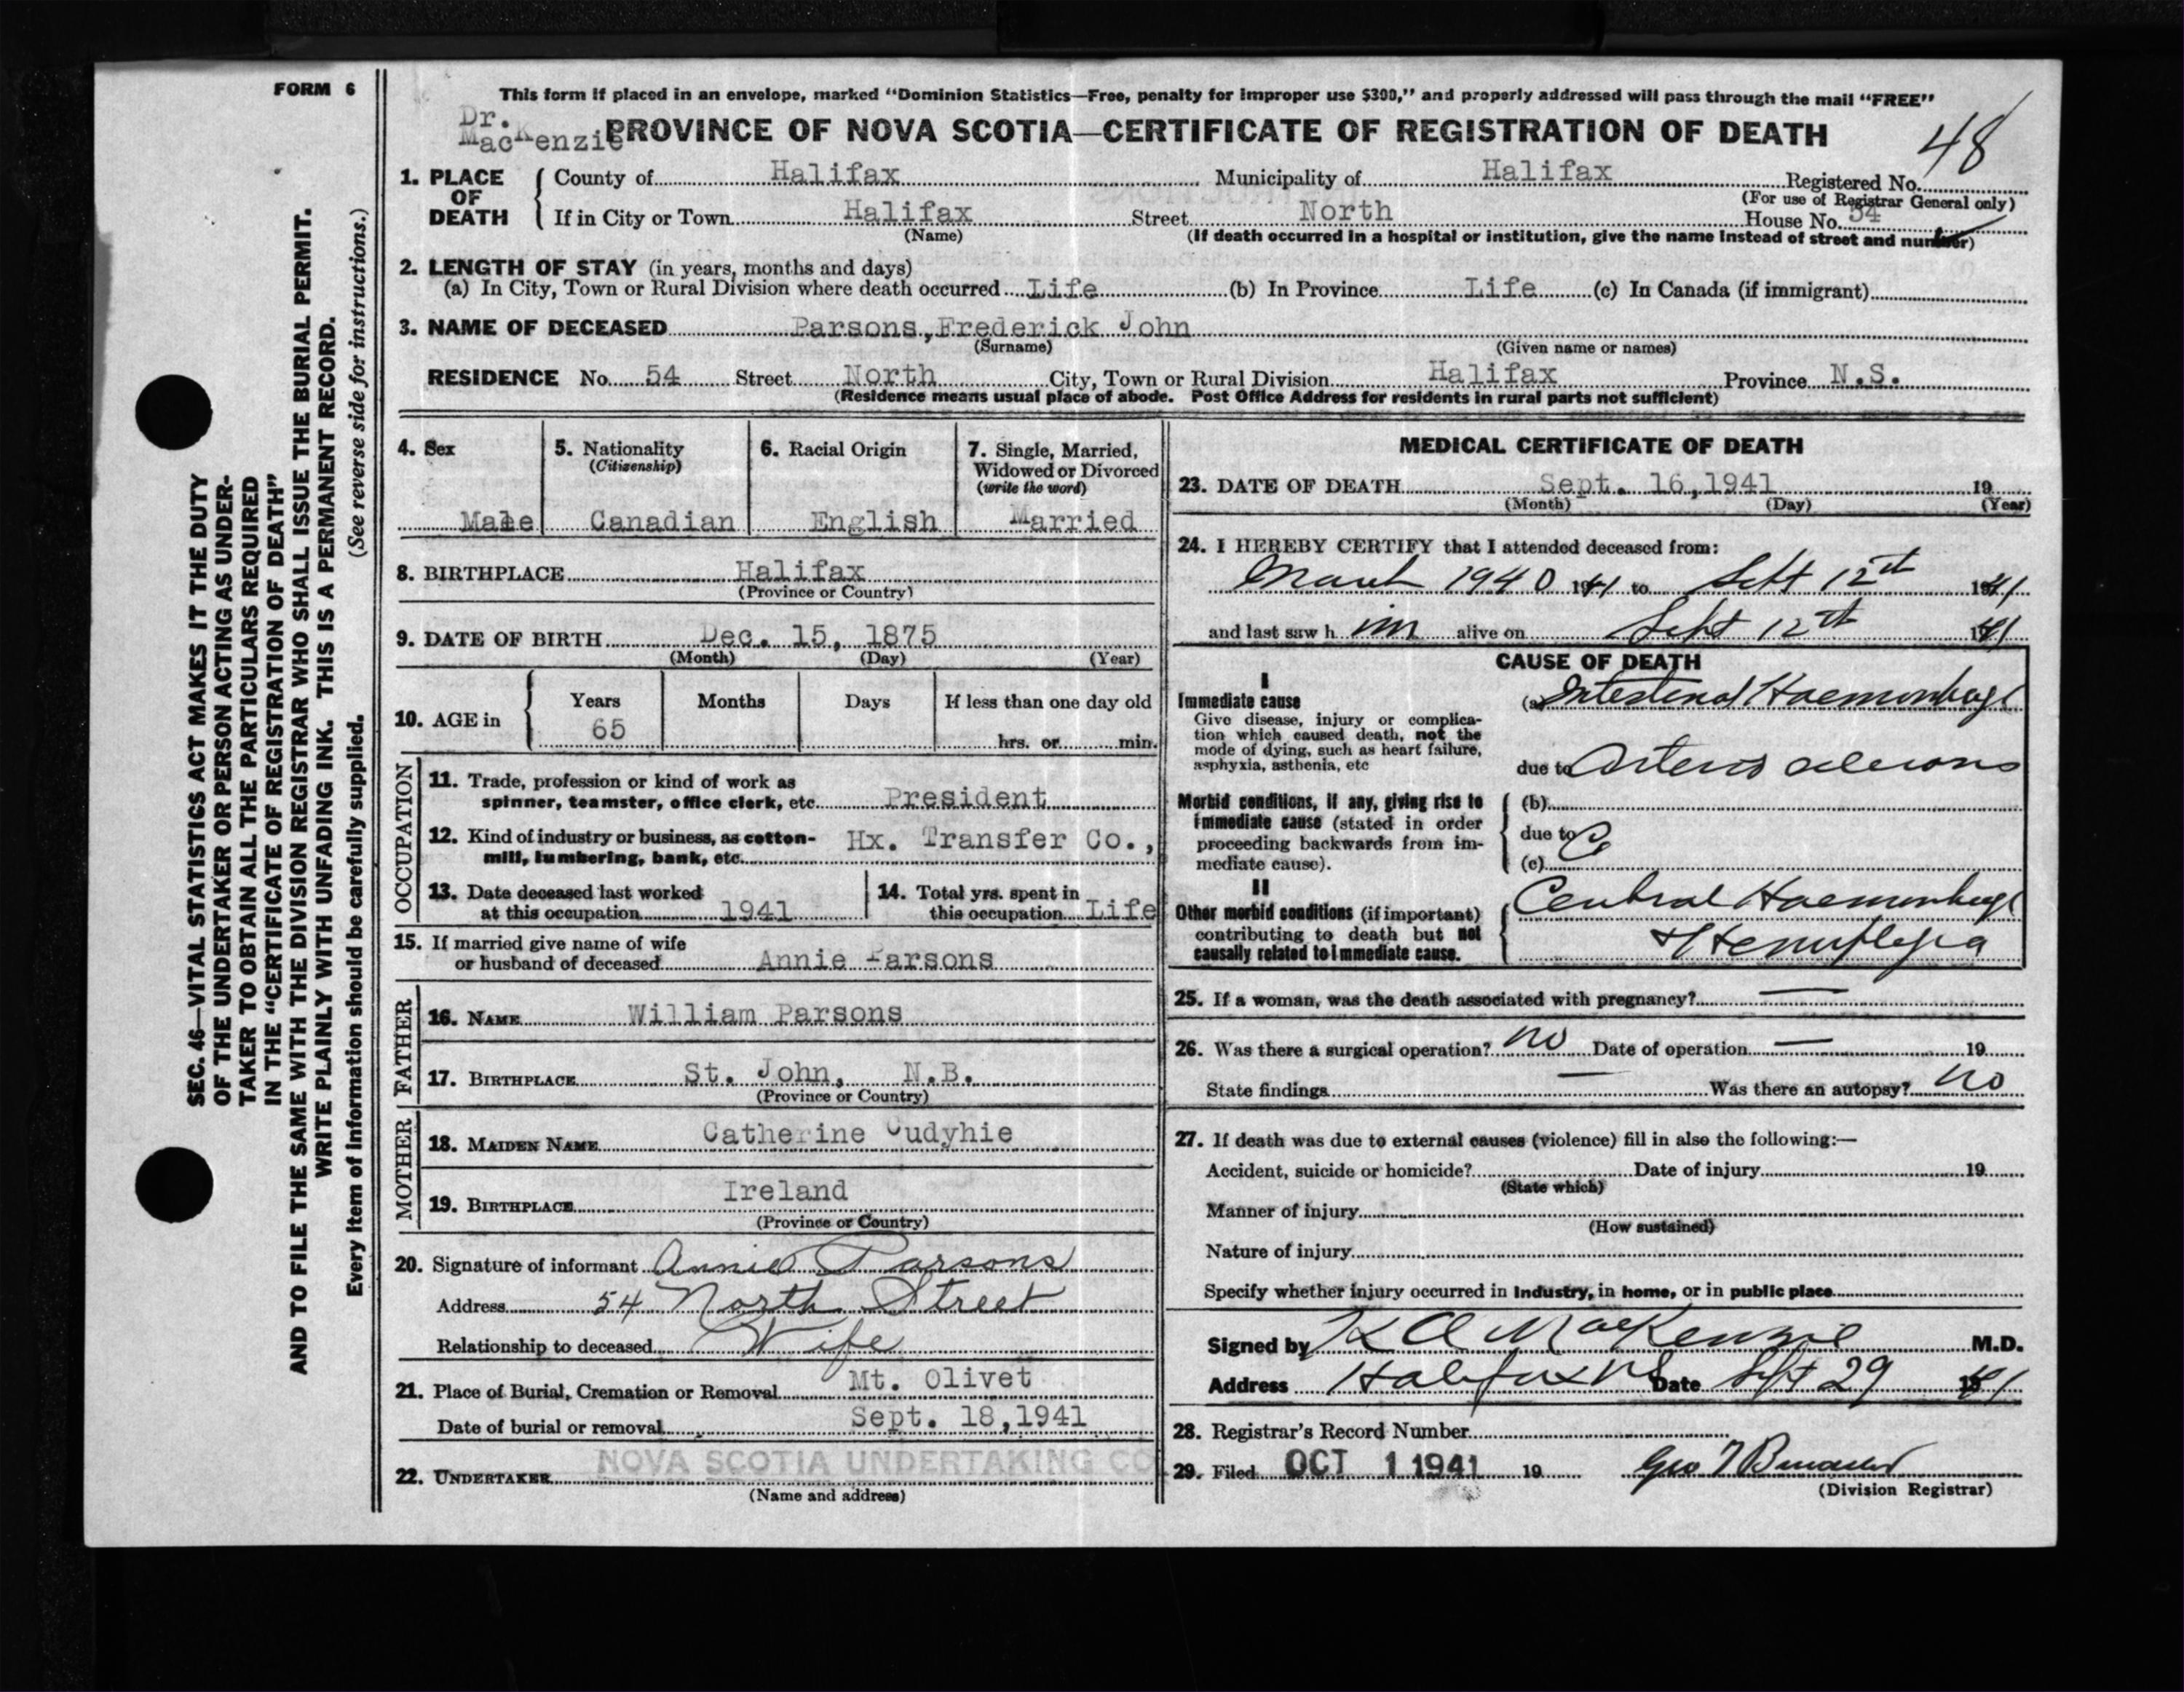 FORM 6
SEC. 46—VITAL STATISTICS ACT MAKES IT THE DUTY
OF THE UNDERTAKER OR PERSON ACTING AS UNDER-
TAKER TO OBTAIN ALL THE PARTICULARS REQUIRED
IN THE "CERTIFICATE OF REGISTRATION OF DEATH"
AND TO FILE THE SAME WITH THE DIVISION REGISTRAR WHO SHALL ISSUE THE BURIAL PERMIT.
WRITE PLAINLY WITH UNFADING INK. THIS IS A PERMANENT RECORD.
Every item of information should be carefully supplied. (See reverse side for instructions.)
This form if placed in an envelope, marked "Dominion Statistics—Free, penalty for improper use $300," and properly addressed will pass through the mail "FREE"
Dr.
MacKenzie
PROVINCE OF NOVA SCOTIA—CERTIFICATE OF REGISTRATION OF DEATH
48
1. PLACE OF DEATH
County of Halifax Municipality of Halifax Registered No.
(For use of Registrar General only)
If in City or Town Halifax Street North House No. 54
(Name) (If death occurred in a hospital or institution, give the name instead of street and number)
2. LENGTH OF STAY (in years, months and days)
(a) In City, Town or Rural Division where death occurred Life (b) In Province Life (c) In Canada (if immigrant)
3. NAME OF DECEASED Parsons, Frederick John
(Surname) (Given name or names)
RESIDENCE No. 54 Street North City, Town or Rural Division Halifax Province N.S.
(Residence means usual place of abode. Post Office Address for residents in rural parts not sufficient)
4. Sex
Male
5. Nationality
(Citizenship)
Canadian
6. Racial Origin
English
7. Single, Married,
Widowed or Divorced
(write the word)
Married
8. BIRTHPLACE Halifax
(Province or Country)
9. DATE OF BIRTH Dec. 15, 1875
(Month) (Day) (Year)
10. AGE in
Years Months Days If less than one day old
65 hrs. or min.
OCCUPATION
11. Trade, profession or kind of work as
spinner, teamster, office clerk, etc. President
12. Kind of industry or business, as cotton-
mill, lumbering, bank, etc. Hx. Transfer Co.,
13. Date deceased last worked
at this occupation 1941
14. Total yrs. spent in
this occupation Life
15. If married give name of wife
or husband of deceased Annie Parsons
FATHER
16. NAME William Parsons
17. BIRTHPLACE St. John, N.B.
(Province or Country)
MOTHER
18. MAIDEN NAME Catherine Cudyhie
19. BIRTHPLACE Ireland
(Province or Country)
20. Signature of informant Annie Parsons
Address 54 North Street
Relationship to deceased Wife
21. Place of Burial, Cremation or Removal Mt. Olivet
Date of burial or removal Sept. 18,1941
22. UNDERTAKER NOVA SCOTIA UNDERTAKING CO
(Name and address)
MEDICAL CERTIFICATE OF DEATH
23. DATE OF DEATH Sept. 16,1941 19
(Month) (Day) (Year)
24. I HEREBY CERTIFY that I attended deceased from:
March 1940 1941 to Sept 12th 1941
and last saw him alive on Sept 12th 1941
CAUSE OF DEATH
I
Immediate cause
Give disease, injury or complica-
tion which caused death, not the
mode of dying, such as heart failure,
asphyxia, asthenia, etc
(a) Intestinal Haemorrhage
due to Arterio sclerosis
Morbid conditions, if any, giving rise to
immediate cause (stated in order
proceeding backwards from im-
mediate cause).
(b)
due to
(c)
II
Other morbid conditions (if important)
contributing to death but not
causally related to immediate cause.
Cerebral Haemorrhage
+ Hemiplegia
25. If a woman, was the death associated with pregnancy? —
26. Was there a surgical operation? no Date of operation — 19
State findings — Was there an autopsy? no
27. If death was due to external causes (violence) fill in also the following:—
Accident, suicide or homicide? Date of injury 19
(State which)
Manner of injury
(How sustained)
Nature of injury
Specify whether injury occurred in industry, in home, or in public place
Signed by K A MacKenzie M.D.
Address Halifax NS Date Sept 29 1941
28. Registrar's Record Number
29. Filed OCT 1 1941 19
(Division Registrar)